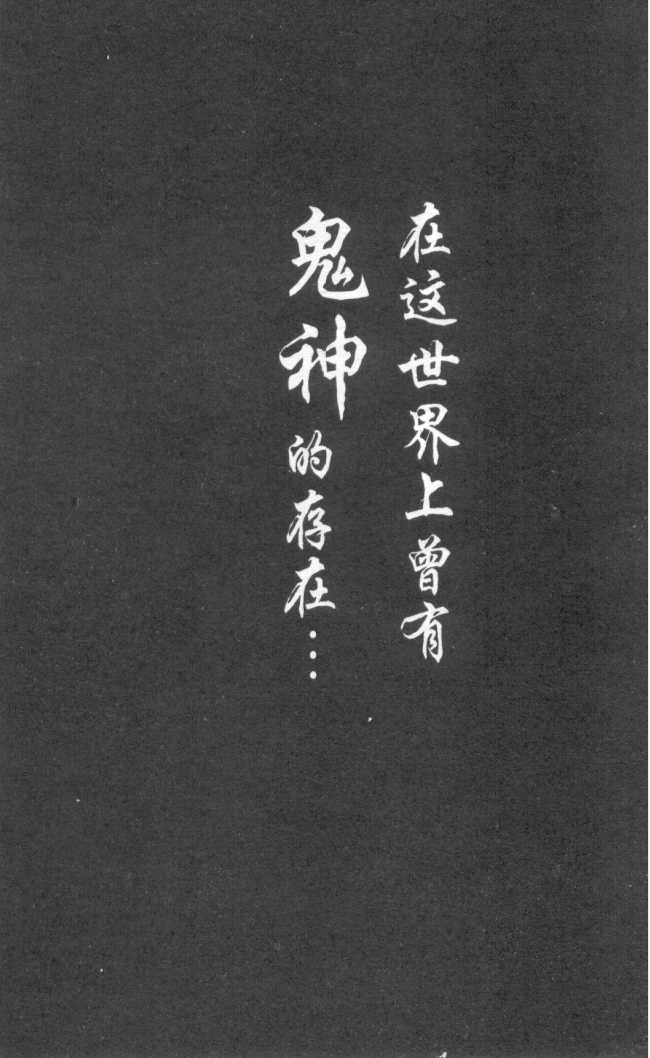 在这世界上曾有
鬼神的存在…